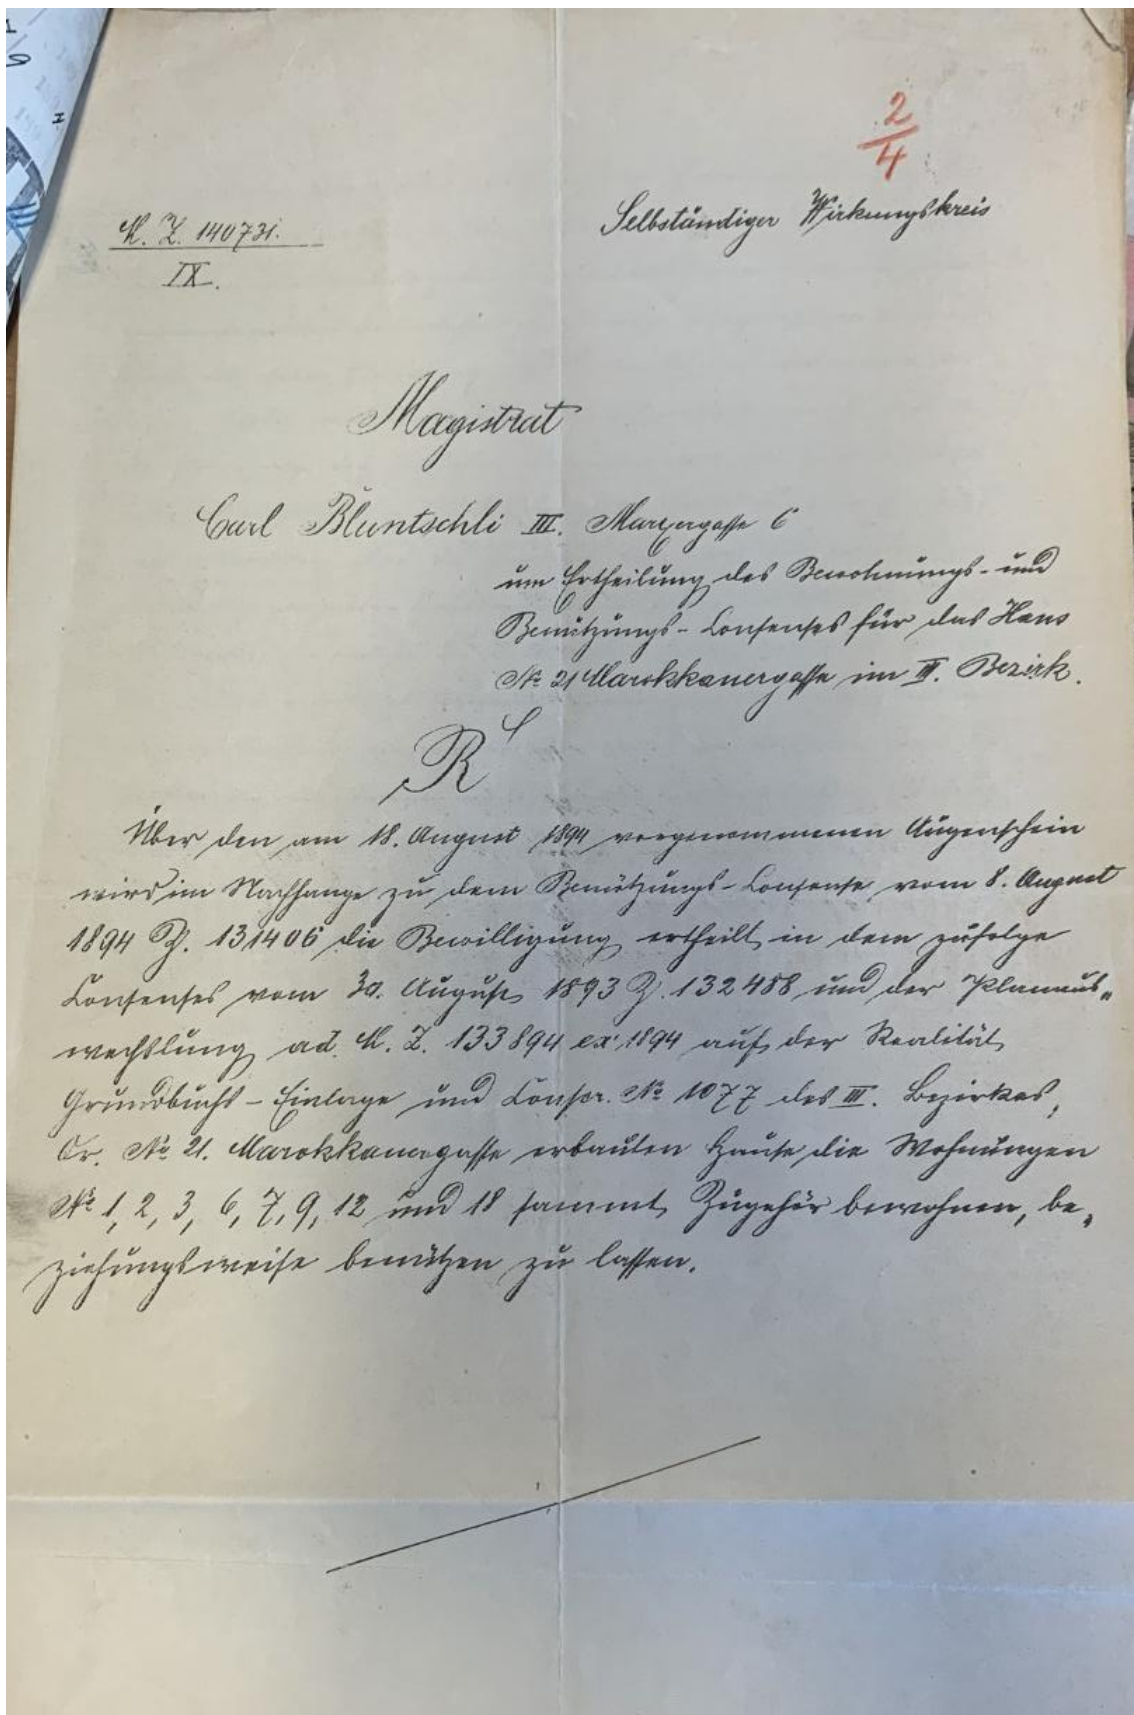 2
4
Selbständiger Wirkungskreis
M. Z. 140731.
IX.
Magistrat
Carl Bluntschli III. Marxergasse 6
um Ertheilung des Bewohnungs- und
Benützungs-Consenses für das Haus
No 21 Marokkanergasse im III. Bezirk.
R
Über den am 18. August 1894 vorgenommenen Augenschein
wird im Nachhange zu dem Benützungs-Consense vom 8. August
1894 Z. 131406 die Bewilligung ertheilt, in dem zufolge
Consenses vom 30. August 1893 Z. 132488 und der Planaus„
wechslung ad. M. Z. 133894 ex 1894 auf der Realität
Grundbuchs-Einlage und Conscr. No 1077 des III. Bezirkes,
Or. No 21. Marokkanergasse erbauten Hause die Wohnungen
No 1, 2, 3, 6, 7, 9, 12 und 18 sammt Zugehör bewohnen, be„
ziehungsweise benützen zu lassen.